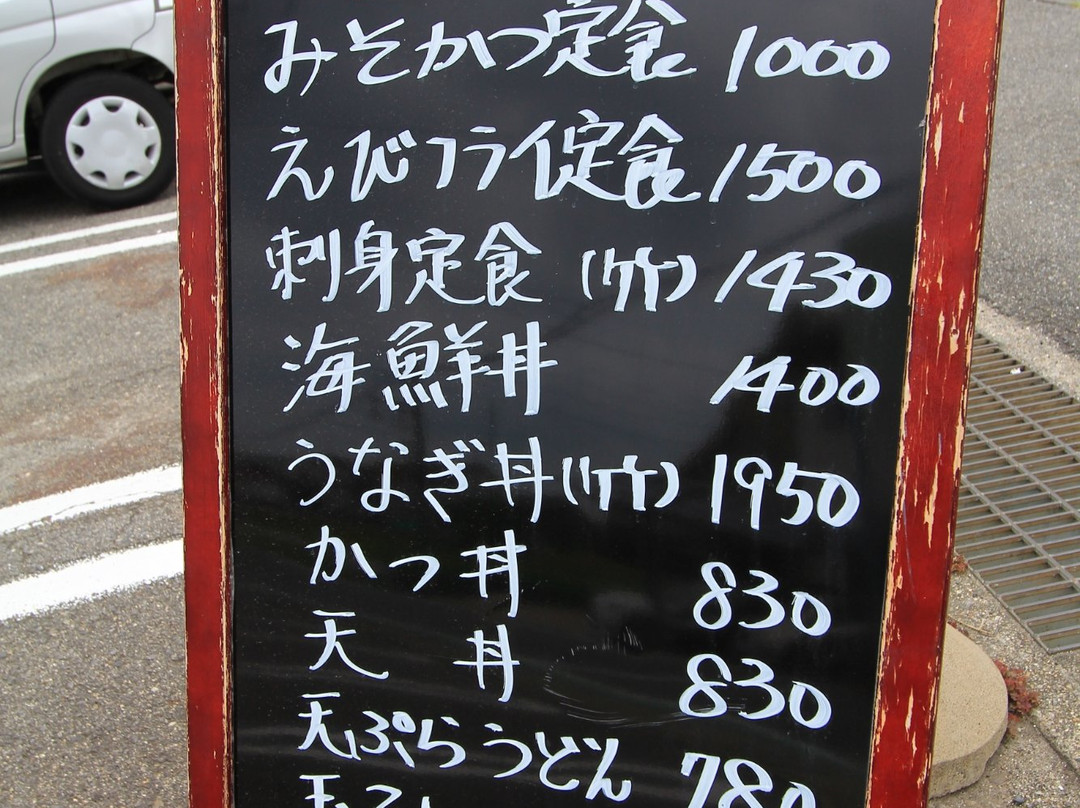 みそかつ定食 1000
えびフライ定食 1500
刺身定食 (竹) 1430
海鮮丼 1400
うなぎ丼(竹) 1950
かつ丼 830
天丼 830
天ぷらうどん 780